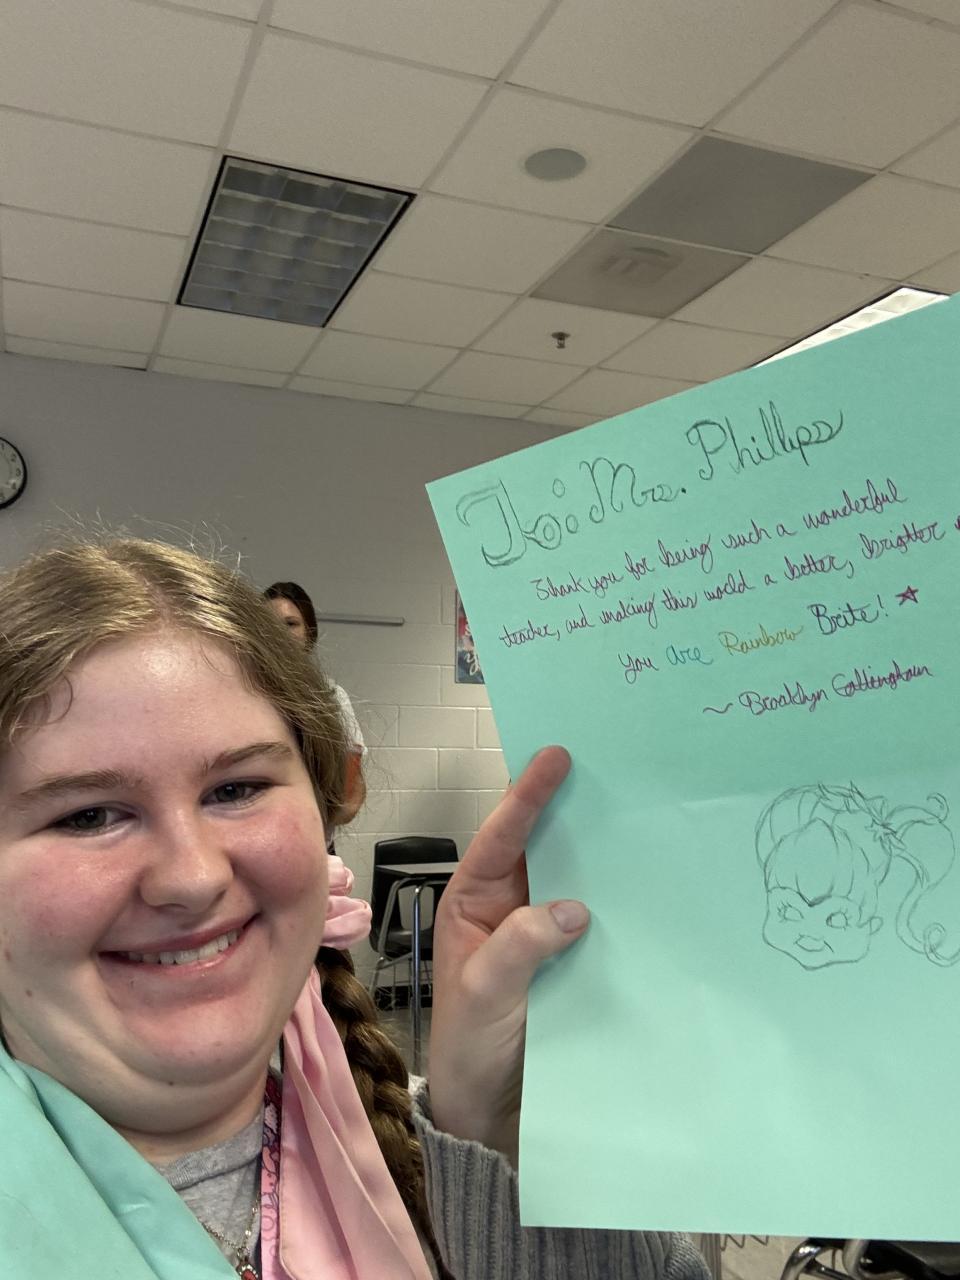 To: Mrs. Phillips
Thank you for being such a wonderful
teacher, and making this world a better, brighter
you are Rainbow Brite!
~ Brooklyn Cottingham